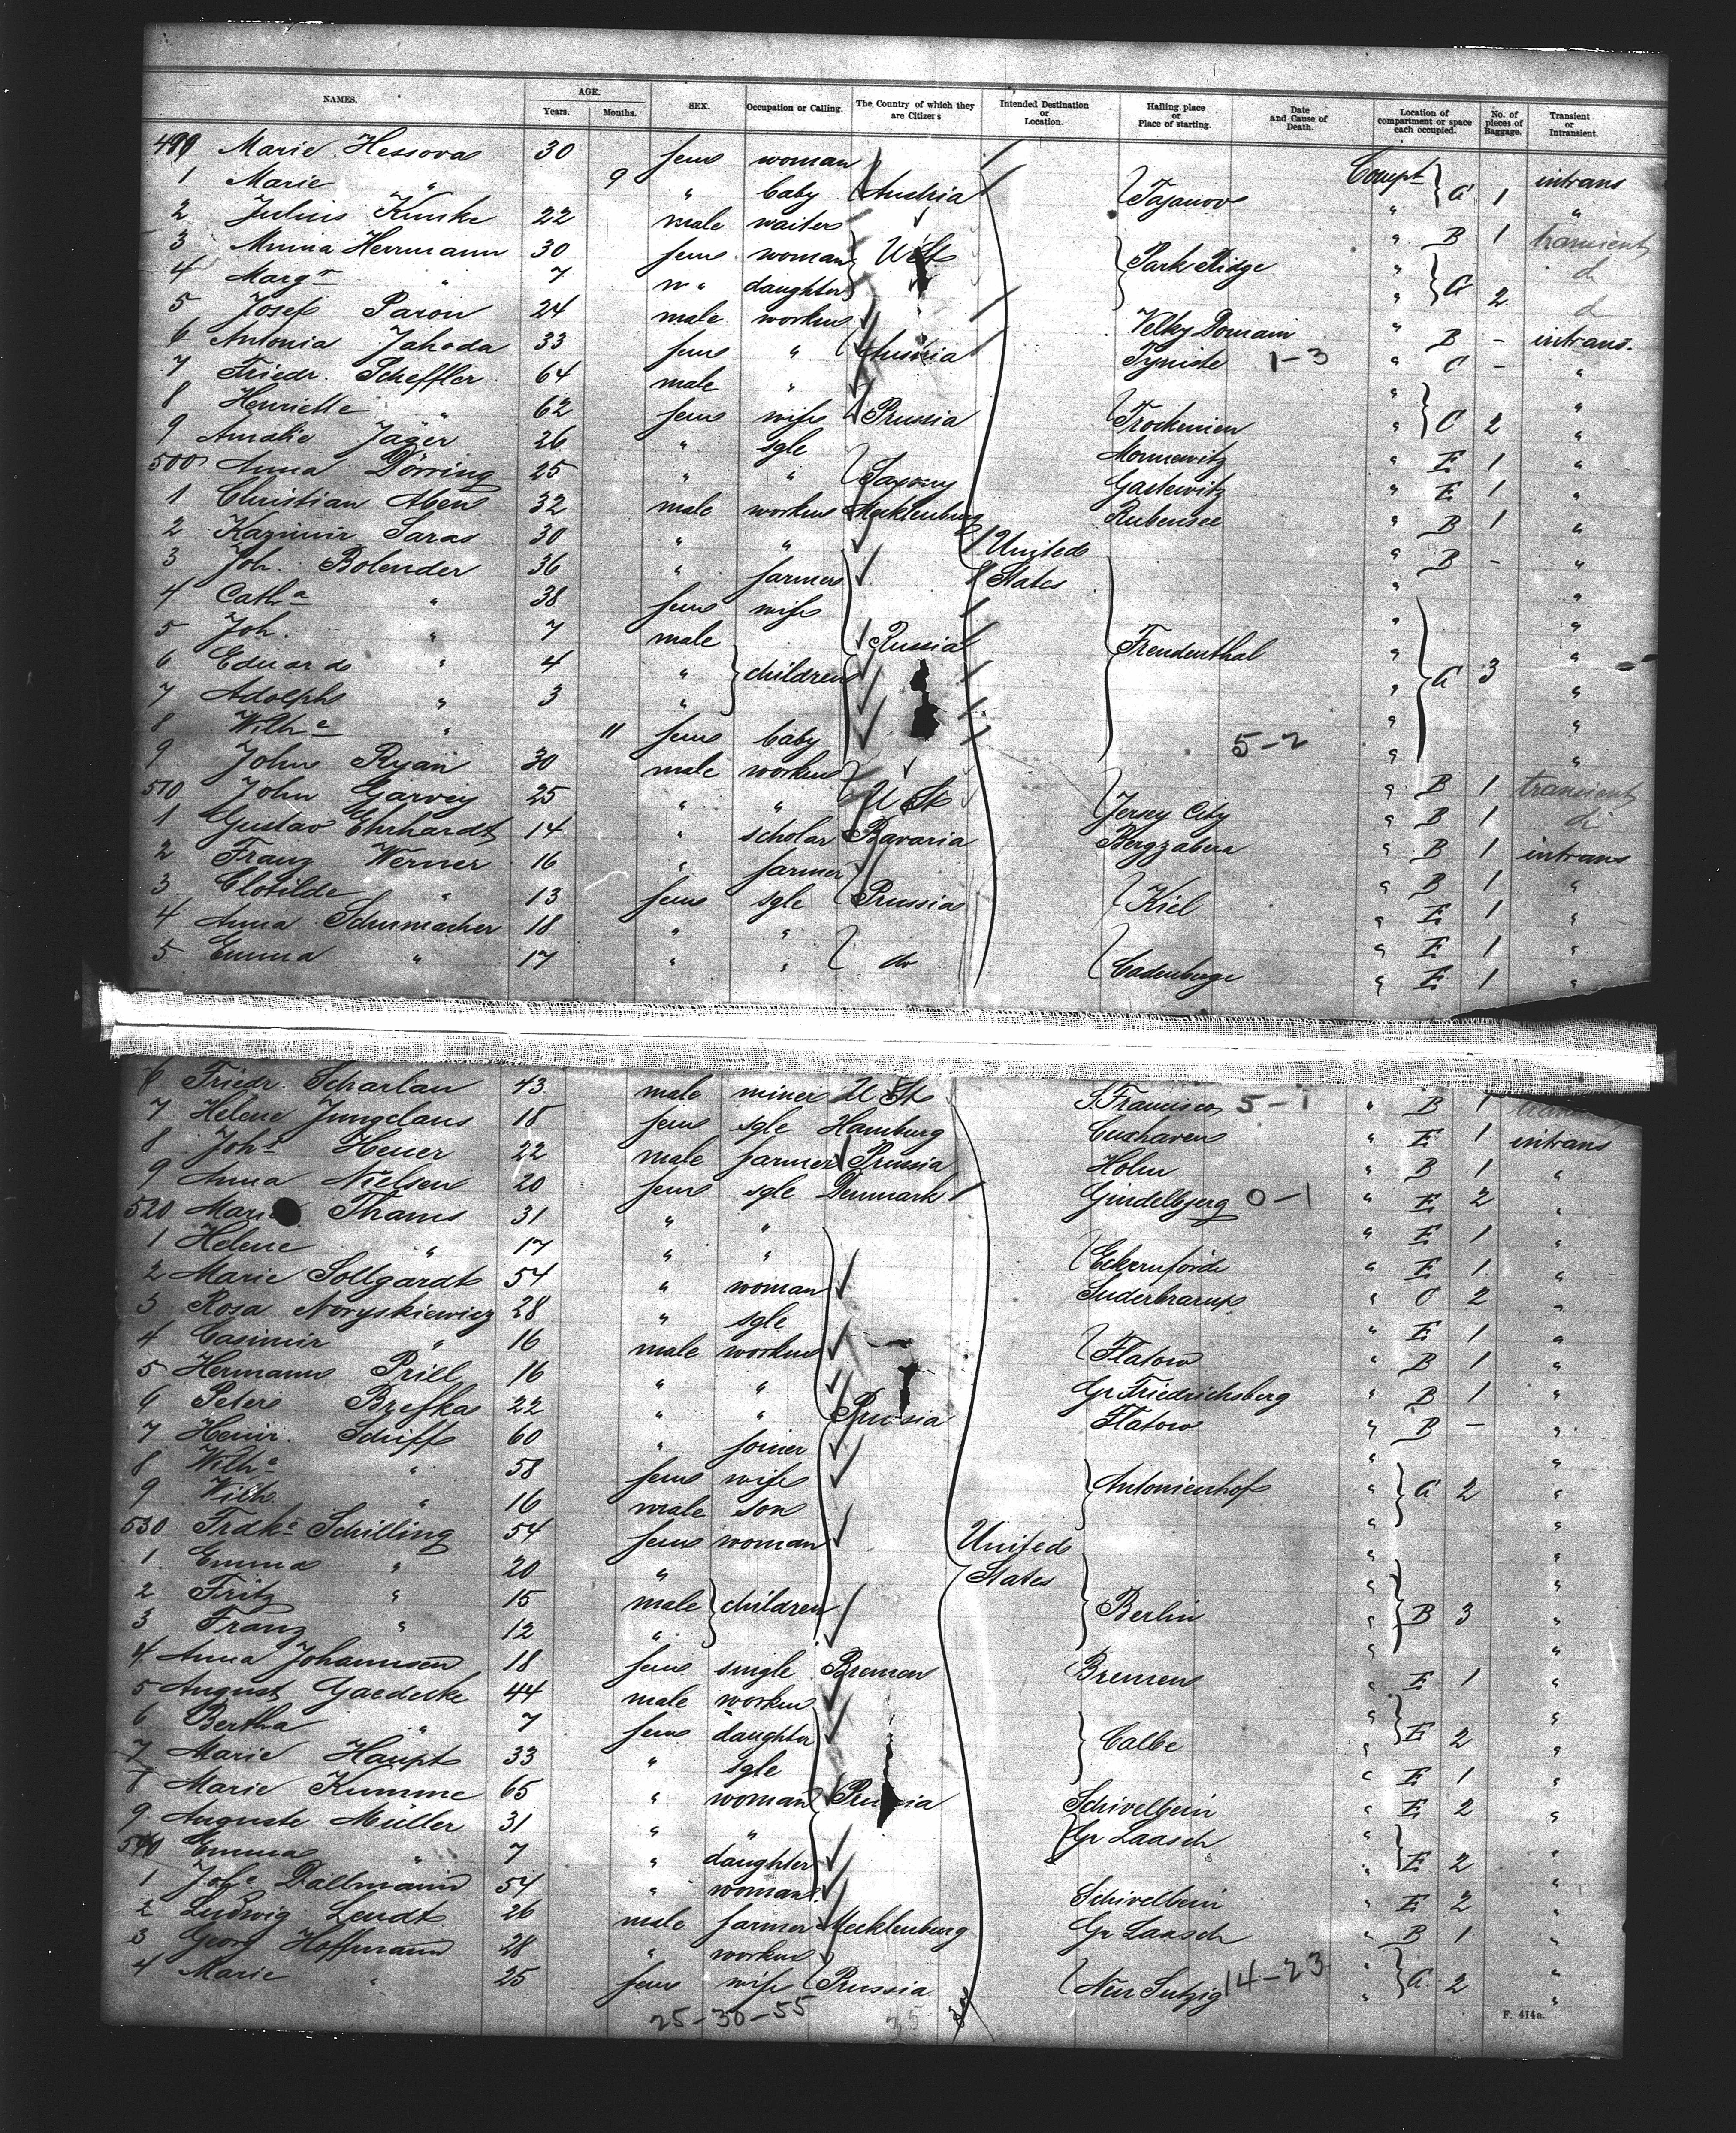 NAMES. AGE. Years. Months. SEX. Occupation or Calling. The Country of which they are Citizens Intended Destination or Location. Hailing place or Place of starting. Date and Cause of Death. Location of compartment or space each occupied. No. of pieces of Baggage. Transient or Intransient.
Marie Hessova 30 fem woman
1 Marie " 9 " baby Austria Tajanov Compt " A 1 intrans "
2 Julius Kunke 22 male waiter " B 1 transient
3 Minna Herrmann 30 fem woman U St Park Ridge " d
4 Marg " 7 " daughter " A 2 d
5 Josef Paron 24 male worker Velky " B - intrans.
6 Antonia Jahoda 33 fem " Austria Tyniste 1-3 " C - "
7 Friedr. Scheffler 64 male " " "
8 Henriette " 62 fem wife Prussia " C 2 "
9 Amalie Jäger 26 " sgle " E 1 "
500 Anna Dörring 25 " " Saxony " E 1 "
1 Christian Aben 32 male worker Mecklenburg Rubensee " B 1 "
2 Kazimir Saras 30 " " United " B - "
3 Joh. Bolender 36 " farmer States " "
4 Catha " 38 fem wife " "
5 Joh. " 7 male Russia Freudenthal " "
6 Eduard " 4 " children " A 3 "
7 Adolph " 3 " " "
8 Wilhe " 11 fem baby 5-2 " "
9 John Ryan 30 male worker " B 1 transient
510 John Garvey 25 " " U St Jersey City " B 1 d
1 Gustav Ehrhardt 14 " scholar Bavaria Bergzabern " B 1 intrans
2 Franz Werner 16 " farmer " B 1 "
3 Clotilde " 13 fem sgle Prussia Kiel " E 1 "
4 Anna Schumacher 18 " " " E 1 "
5 Emma " 17 " " do Cadenberge " E 1 "
6 Friedr. Scharlau 43 male miner U St S. Francisco 5-1 " B 1
7 Helene Jungclaus 18 fem sgle Hamburg Cuxhaven " E 1 intrans
8 Johs Heuer 22 male farmer Prussia Holm " B 1 "
9 Anna Nielsen 20 fem sgle Denmark Gindelbjerg 0-1 " E 2 "
520 Marie Thams 31 " " " E 1 "
1 Helene " 17 " " Eckernförde " E 1 "
2 Marie Sollgardt 54 " woman Suderbrarup " C 2 "
3 Rosa Noryskiewicz 28 " sgle " E 1 "
4 Casimir " 16 male worker Flatow " B 1 "
5 Hermann Prill 16 " " Gr Friedrichsberg " B 1 "
6 Peter Brefka 22 " " Prussia Flatow " B - "
7 Heinr. Schiff 60 " joiner " "
8 Wilhe " 58 fem wife Antonienhof " A 2 "
9 Wilh. " 16 male son " "
530 Frdke Schilling 54 fem woman United " "
1 Emma " 20 " States " "
2 Fritz " 15 male children Berlin " B 3 "
3 Franz " 12 " " "
4 Anna Johannsen 18 fem single Bremen Bremen " E 1 "
5 August Gaedecke 44 male worker " "
6 Bertha " 7 fem daughter Calbe " E 2 "
7 Marie Haupt 33 " sgle " E 1 "
8 Marie Kumme 65 " woman Prussia Schivelbein " E 2 "
9 Auguste Müller 31 " " Gr Laasch " "
540 Emma " 7 " daughter " E 2 "
1 Johe Dallmann 54 " woman Schivelbein " E 2 "
2 Ludwig Lendt 26 male farmer Mecklenburg Gr Laasch " B 1 "
3 Georg Hoffmann 28 " worker " "
4 Marie " 25 fem wife Prussia Neu 14-23 " A 2 "
25-30-55 35
F. 414a.